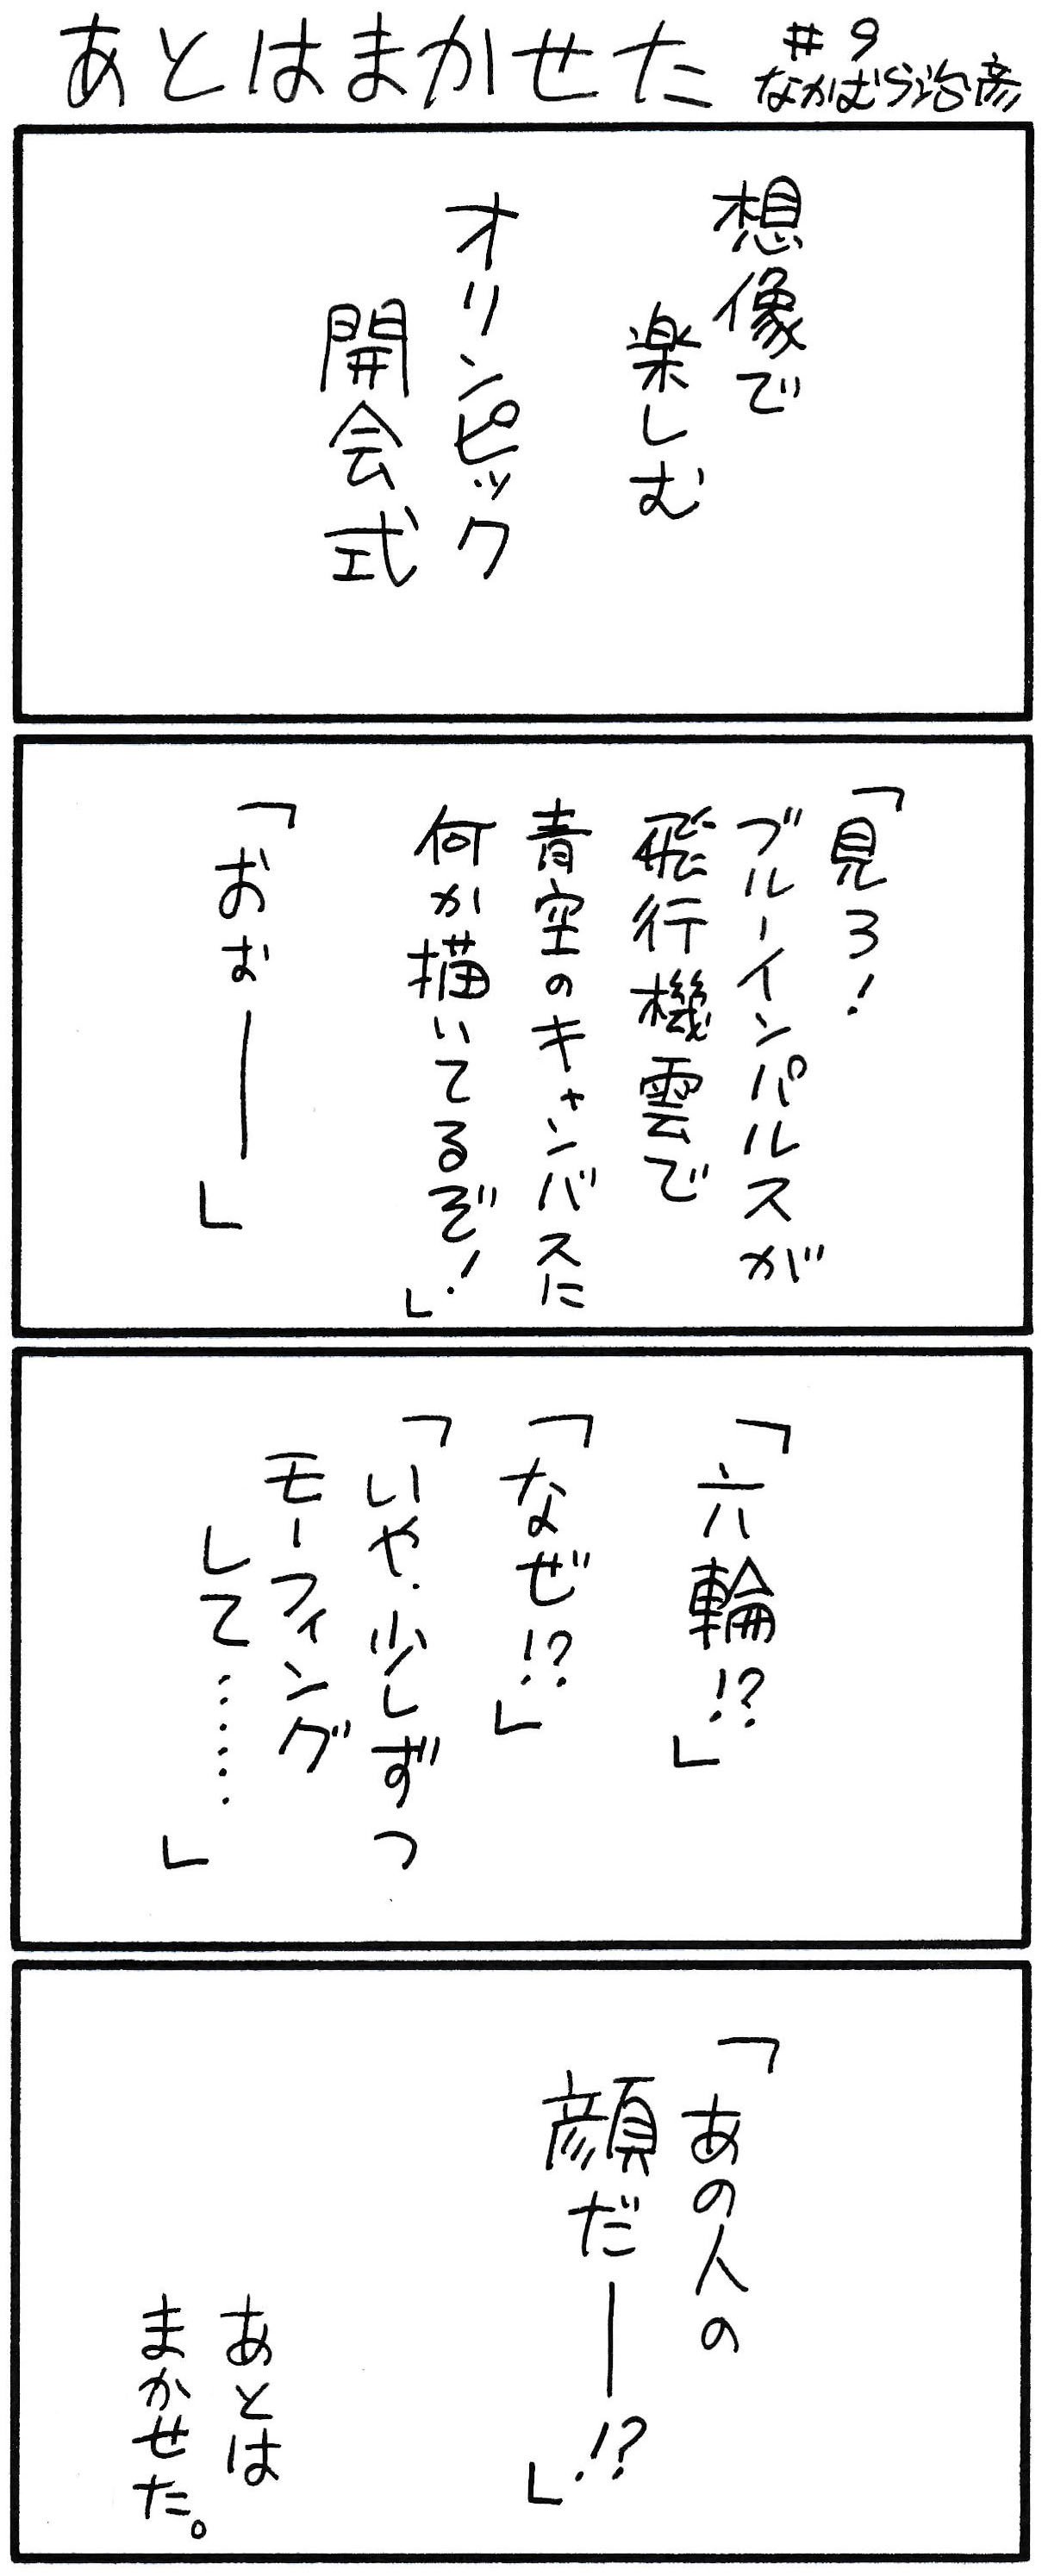 あとはまかせた
#9
なかむら治彦
想像で
楽しむ
オリンピック
開会式
「見ろ！
ブルーインパルスが
飛行機雲で
青空のキャンバスに
何か描いてるぞ！」
「おおー」
「六輪!?」
「なぜ!?」
「いや、少しずつ
モーフィング
して……」
「あの人の
顔だー!?」
あとは
まかせた。